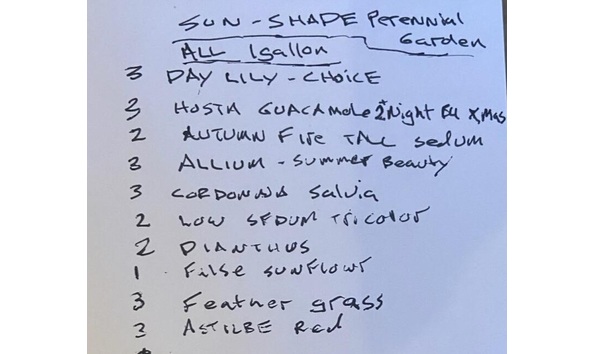 SUN - SHADE Perennial
Garden
ALL 1gallon
3 DAY LILY - CHOICE
3 HOSTA GUACAMOLE 2 + Night B4 X,Mas
2 AUTUMN FIRE TALL SEDUM
3 ALLIUM - Summer Beauty
3 CORDONNA Salvia
2 LOW SEDUM Tricolor
2 DIANTHUS
1 Filse SUNFLOWr
3 Feather grass
3 ASTILBE Red